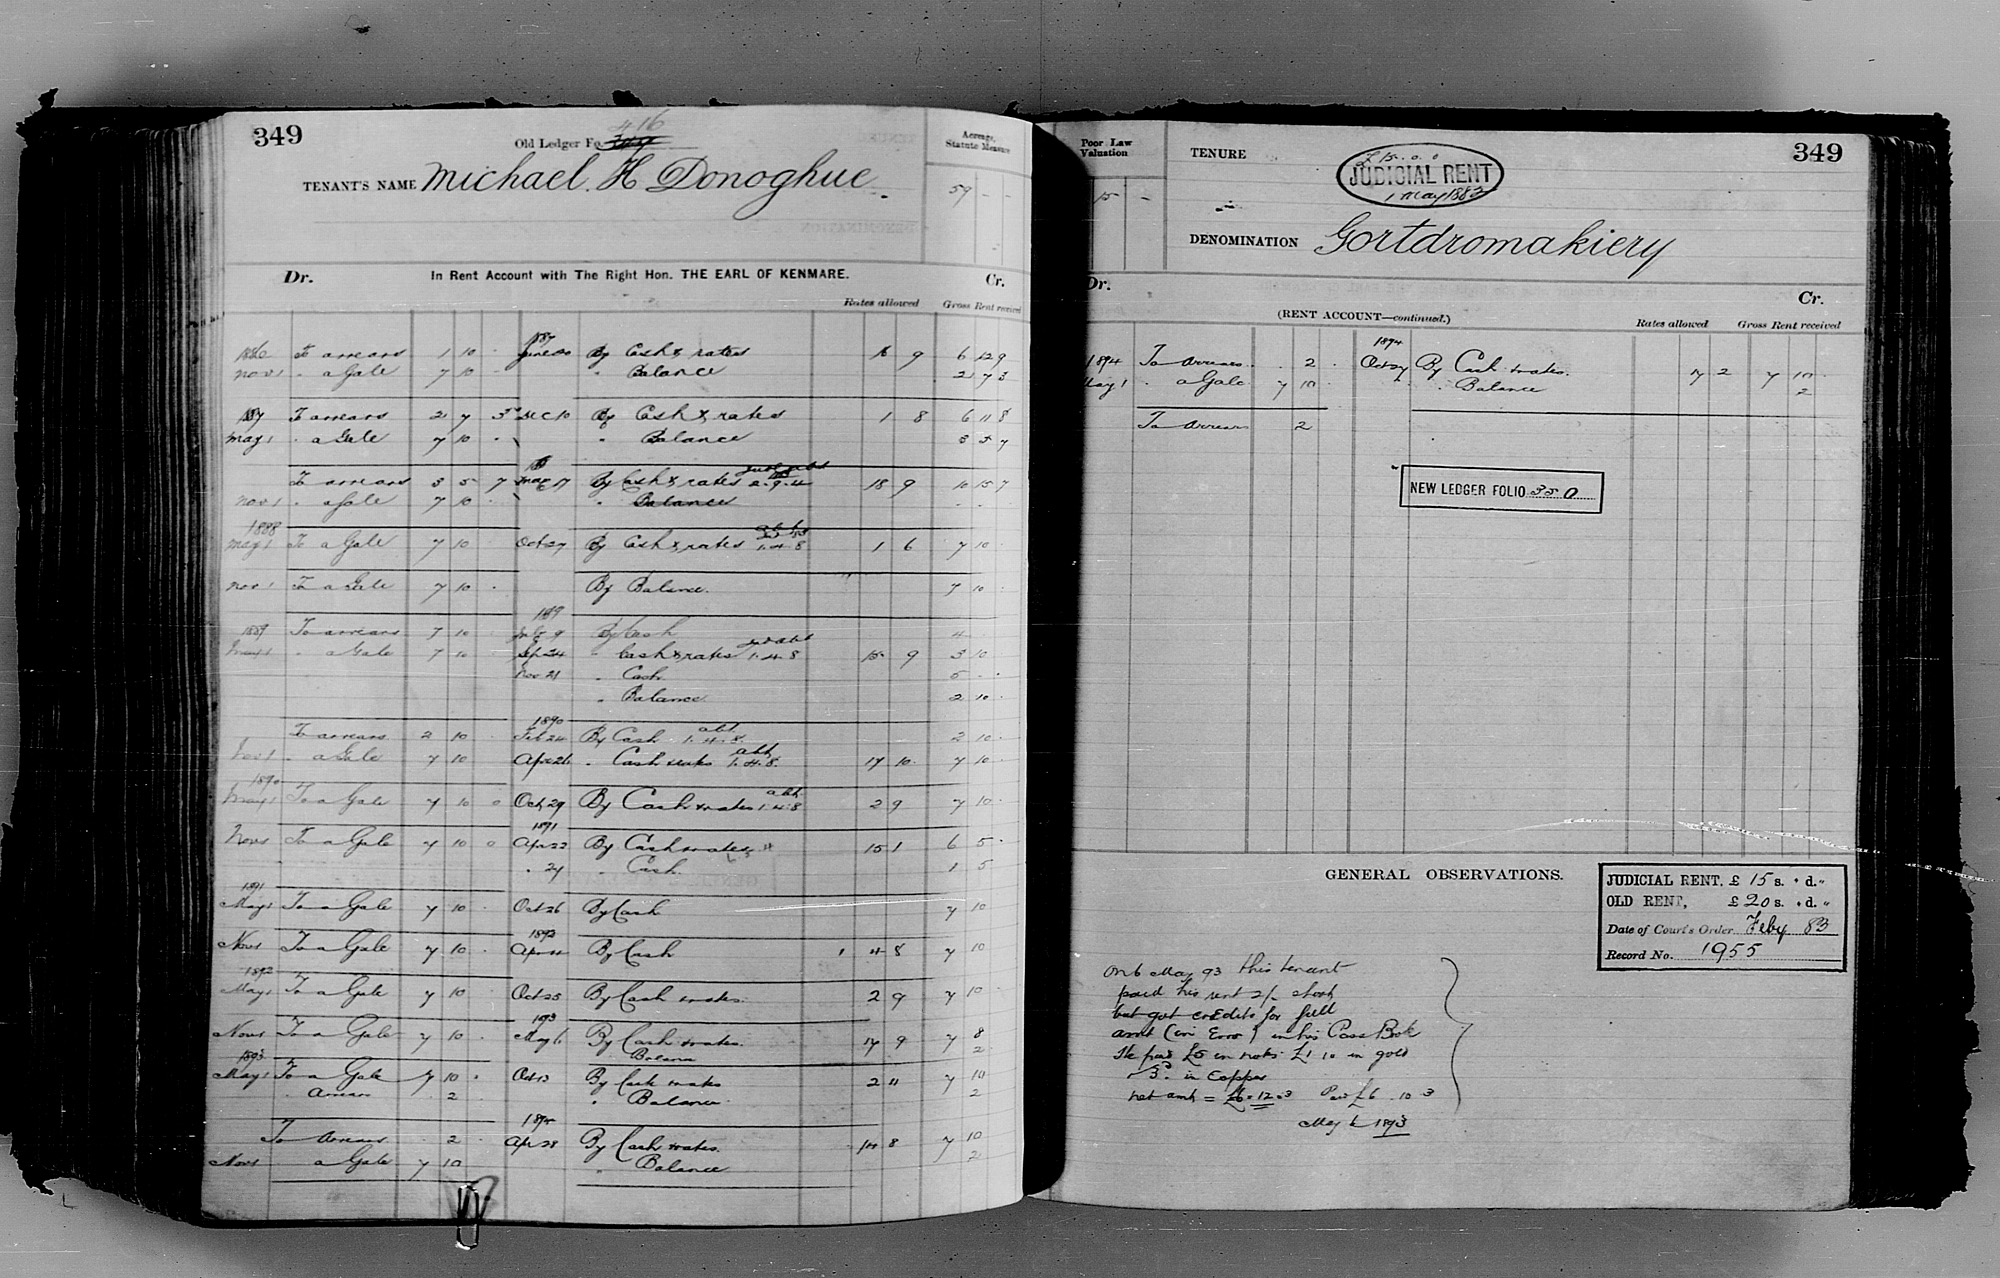 349
Old Ledger Fo. 349 416
TENANT'S NAME Michael H Donoghue
Acreage, Statute Measure
59 - -
Dr. In Rent Account with The Right Hon. THE EARL OF KENMARE. Cr.
Rates allowed Gross Rent received
1886 To arrears 1 10 - 1887 June 20 By Cash & rates 16 9 6 12 9
Nov 1 " a Gale 7 10 - " Balance 2 7 3
1887 To arrears 2 7 3 Dec 10 By Cash & rates 1 8 6 11 8
May 1 " a Gale 7 10 - " Balance 3 5 7
To arrears 3 5 7 May 17 By Cash & rates 2.9.4 18 9 10 15 7
Nov 1 " a Gale 7 10 - " Balance - -
1888
May 1 To a Gale 7 10 Oct 27 By Cash & rates 1.4.8 1 6 7 10
Nov 1 To a Gale 7 10 - By Balance. 7 10
1889
1889 To arrears 7 10 July 9 By Cash 4 -
May 1 " a Gale 7 10 Sep 24 " Cash & rates 1.4.8 15 9 3 10
Nov 21 " Cash 5 - -
" Balance 2 10
1890
To arrears 2 10 Feb 24 By Cash abt 1.4.8 2 10
Nov 1 " a Gale 7 10 Apr 26 " Cash & rates abt 1.4.8 17 10 7 10
1890
May 1 To a Gale 7 10 0 Oct 29 By Cash & rates abt 1.4.8 2 9 7 10
1891
Nov 1 To a Gale 7 10 0 Apr 22 By Cash & rates 15 1 6 5
" 24 " Cash. 1 5
1891
May 1 To a Gale 7 10 Oct 26 By Cash 7 10
1892
Nov 1 To a Gale 7 10 Apr 11 By Cash 1 4 8 7 10
1892
May 1 To a Gale 7 10 Oct 25 By Cash & rates. 2 9 7 10
1893
Nov 1 To a Gale 7 10 May 6 By Cash & rates. 17 9 7 8
Balance 2
1893
May 1 To a Gale 7 10 Oct 13 By Cash & rates 2 11 7 10
" Arrears 2 " Balance 2
1894
To Arrears 2 Apr 28 By Cash & rates. 14 8 7 10
Nov 1 a Gale 7 10 " Balance 2
Poor Law Valuation
15 -
TENURE
£15.0.0
JUDICIAL RENT
1 May 1883
349
DENOMINATION Gortdromakiery
Dr. Cr.
(RENT ACCOUNT—continued.)
Rates allowed Gross Rent received
1894
1894 To Arrears 2 Oct 27 By Cash & rates. 7 2 7 10
May 1 " a Gale 7 10 " Balance 2
To Arrears 2
NEW LEDGER FOLIO 350
GENERAL OBSERVATIONS.
JUDICIAL RENT, £ 15 s. " d. "
OLD RENT, £ 20 s. " d. "
Date of Court's Order Feby 83
Record No. 1955
On 6 May 93 this tenant
paid his rent 2/- short
but got credits for full
amt (in Error) in his Pass Book
He paid £5 in notes £1 10 in gold
& 3d in Copper
net amt = £6.12.3 Paid £6.10.3
May 6 1893